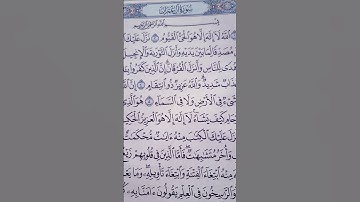 سُورَةُ آلِ عِمْرَانَ
بِسْمِ اللَّهِ الرَّحْمَٰنِ الرَّحِيمِ
اللَّهُ لَا إِلَٰهَ إِلَّا هُوَ الْحَيُّ الْقَيُّومُ ٢ نَزَّلَ
لِمَا بَيْنَ يَدَيْهِ وَأَنزَلَ التَّوْرَىٰةَ وَالْإِنجِيلَ
هُدًى لِّلنَّاسِ وَأَنزَلَ الْفُرْقَانَ إِنَّ الَّذِينَ كَفَرُوا
شَدِيدٌ وَاللَّهُ عَزِيزٌ ذُو انتِقَامٍ ٤ إِنَّ
شَيْءٌ فِي الْأَرْضِ وَلَا فِي السَّمَاءِ ٥ هُوَ الَّذِي
كَيْفَ يَشَاءُ لَا إِلَٰهَ إِلَّا هُوَ الْعَزِيزُ الْحَكِيمُ
عَلَيْكَ الْكِتَٰبَ مِنْهُ ءَايَٰتٌ مُّحْكَمَٰتٌ
وَأُخَرُ مُتَشَٰبِهَٰتٌ فَأَمَّا الَّذِينَ فِي قُلُوبِهِمْ
مِنْهُ ابْتِغَاءَ الْفِتْنَةِ وَابْتِغَاءَ تَأْوِيلِهِ وَمَا
وَالرَّٰسِخُونَ فِي الْعِلْمِ يَقُولُونَ ءَامَنَّا بِهِ